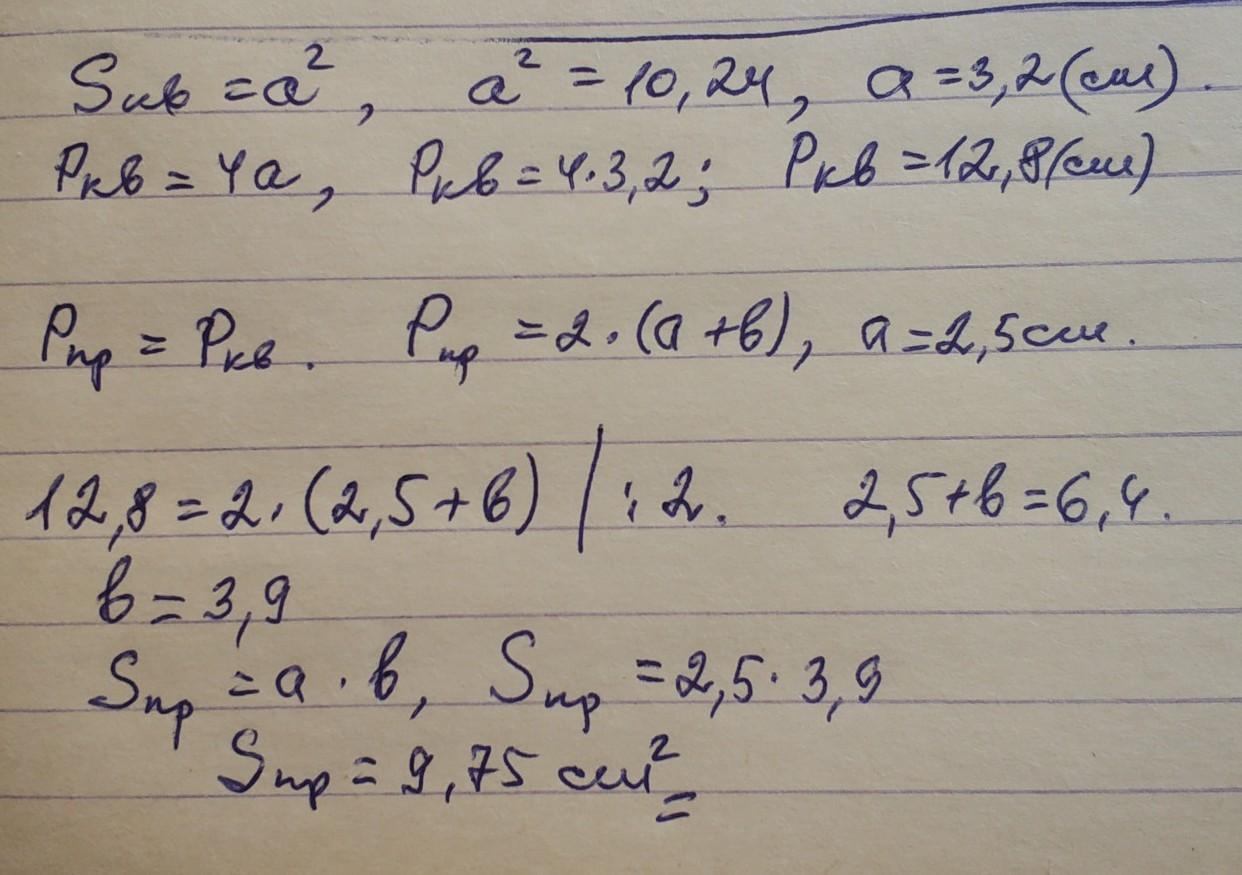 Sкв = a², a² = 10,24, a = 3,2 (см).
Pкв = 4a, Pкв = 4·3,2; Pкв = 12,8 (см)
Pпр = Pкв. Pпр = 2·(a + b), a = 2,5 см.
12,8 = 2·(2,5 + b) | :2. 2,5 + b = 6,4.
b = 3,9
Sпр = a · b, Sпр = 2,5 · 3,9
Sпр = 9,75 см²